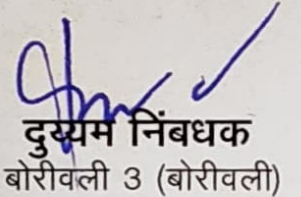 दुय्यम निंबधक
बोरीवली 3 (बोरीवली)